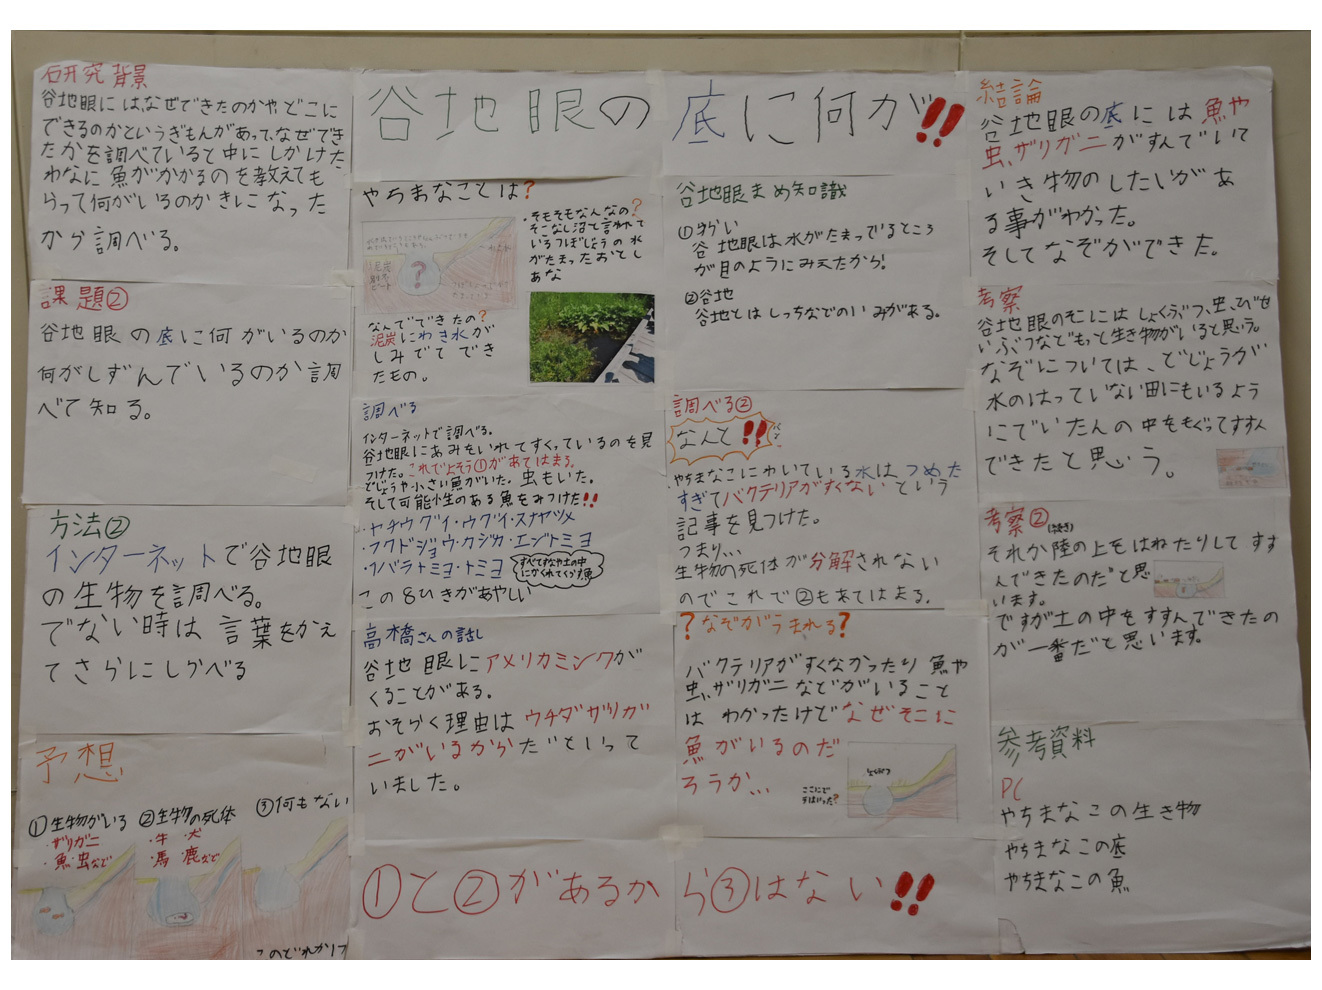 谷地眼の底に何が!!
研究背景
谷地眼には、なぜできたのかや、どこに
できるのかというぎもんがあって、なぜでき
たかを調べていると中に しかけた
わなに 魚がかかるのを教えても
らって何がいるのか きに なった
から調べる。
課題②
谷地眼の底に何がいるのか
何がしずんでいるのか 調
べて知る。
方法②
インターネットで谷地眼
の生物を調べる。
でない時は 言葉をかえ
てさらにしらべる
予想
①生物がいる
・ザリガニ
・魚・虫など
②生物の死体
・牛・犬
・馬 鹿など
③何もない
やちまなことは?
・そもそもなんなの?
そこなし沼と言われて
いるつぼじょうの水
がたまったおとし
あな
?
なんでできたの?
泥炭にわき水が
しみでて でき
たもの。
調べる
インターネットで調べる。
谷地眼にあみをいれてすくっているのを見
つけた。これでよそう①があてはまる。
どじょうや小さい魚がいた。虫もいた。
そして可能性のある魚をみつけた!!
・ヤチウグイ・ウグイ・スナヤツメ
・フクドジョウ・カジカ・エゾトミヨ
・イバラトミヨ・トミヨ
すべてすなや土の中
にかくれてくらす魚
この8ひきがあやしい
高橋さんの話し
谷地眼にアメリカミンクが
くることがある。
おそらく理由は ウチダザリガ
ニがいるからだ といって
いました。
谷地眼まめ知識
谷地眼は水がたまってるところ
が目のようにみえたから!
②谷地
谷地とは しっちなどのいみがある。
調べる②
なんと!!
・やちまなこにわいている水は つめた
すぎてバクテリアがすくない という
記事を見つけた。
つまり...
生物の死体が分解されない
のでこれで②もあてはまる。
?なぞがうまれる?
バクテリアがすくなかったり 魚や
虫、ザリガニなどがいること
は わかったけどなぜそこに
魚がいるのだ
ろうか...
①と②があるから③はない!!
結論
谷地眼の底には 魚や
虫、ザリガニがすんでいて
いき物のしたいがあ
る事がわかった。
そしてなぞができた。
考察
谷地眼のそこには しょくぶつ、虫、びせ
いぶつなどもっと生き物がいると思う。
なぞについては、どじょうが
水のはっていない田にもいるよう
にでいたんの中をもぐってすすん
できたと思う。
考察②(続き)
それか陸の上をはねたりして すす
んできたのだと思
います。
ですが土の中をすすんできたの
が一番だと思います。
参考資料
PC
やちまなこの生き物
やちまなこの底
やちまなこの魚